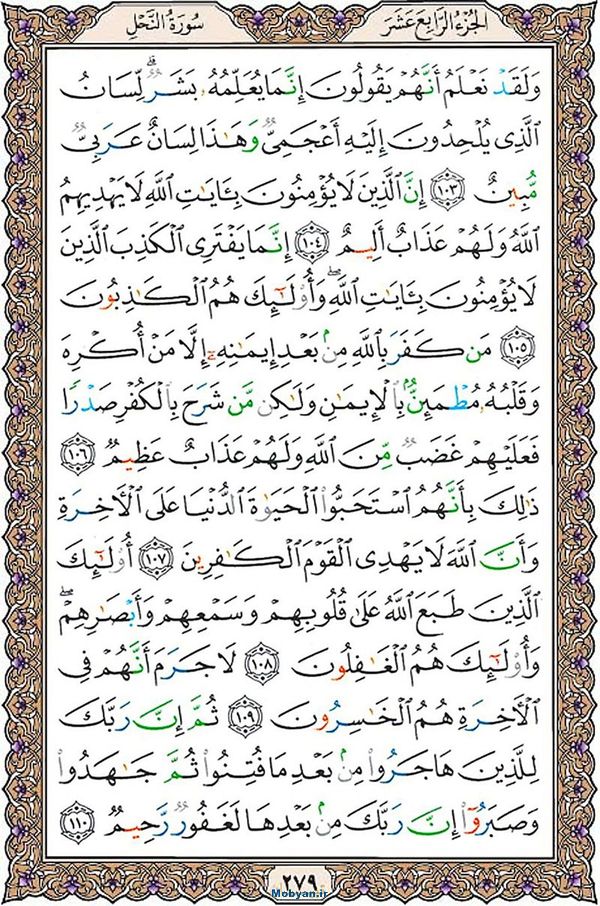 الجزء الرابع عشر
سورة النحل
وَلَقَدۡ نَعۡلَمُ أَنَّهُمۡ يَقُولُونَ إِنَّمَا يُعَلِّمُهُۥ بَشَرٞۗ لِّسَانُ
ٱلَّذِي يُلۡحِدُونَ إِلَيۡهِ أَعۡجَمِيّٞ وَهَٰذَا لِسَانٌ عَرَبِيّٞ
مُّبِينٌ ١٠٣ إِنَّ ٱلَّذِينَ لَا يُؤۡمِنُونَ بِـَٔايَٰتِ ٱللَّهِ لَا يَهۡدِيهِمُ
ٱللَّهُ وَلَهُمۡ عَذَابٌ أَلِيمٌ ١٠٤ إِنَّمَا يَفۡتَرِي ٱلۡكَذِبَ ٱلَّذِينَ
لَا يُؤۡمِنُونَ بِـَٔايَٰتِ ٱللَّهِۖ وَأُوْلَٰٓئِكَ هُمُ ٱلۡكَٰذِبُونَ
١٠٥ مَن كَفَرَ بِٱللَّهِ مِنۢ بَعۡدِ إِيمَٰنِهِۦٓ إِلَّا مَنۡ أُكۡرِهَ
وَقَلۡبُهُۥ مُطۡمَئِنُّۢ بِٱلۡإِيمَٰنِ وَلَٰكِن مَّن شَرَحَ بِٱلۡكُفۡرِ صَدۡرٗا
فَعَلَيۡهِمۡ غَضَبٞ مِّنَ ٱللَّهِ وَلَهُمۡ عَذَابٌ عَظِيمٞ ١٠٦
ذَٰلِكَ بِأَنَّهُمُ ٱسۡتَحَبُّواْ ٱلۡحَيَوٰةَ ٱلدُّنۡيَا عَلَى ٱلۡأٓخِرَةِ
وَأَنَّ ٱللَّهَ لَا يَهۡدِي ٱلۡقَوۡمَ ٱلۡكَٰفِرِينَ ١٠٧ أُوْلَٰٓئِكَ
ٱلَّذِينَ طَبَعَ ٱللَّهُ عَلَىٰ قُلُوبِهِمۡ وَسَمۡعِهِمۡ وَأَبۡصَٰرِهِمۡۖ
وَأُوْلَٰٓئِكَ هُمُ ٱلۡغَٰفِلُونَ ١٠٨ لَا جَرَمَ أَنَّهُمۡ فِي
ٱلۡأٓخِرَةِ هُمُ ٱلۡخَٰسِرُونَ ١٠٩ ثُمَّ إِنَّ رَبَّكَ
لِلَّذِينَ هَاجَرُواْ مِنۢ بَعۡدِ مَا فُتِنُواْ ثُمَّ جَٰهَدُواْ
وَصَبَرُوٓاْ إِنَّ رَبَّكَ مِنۢ بَعۡدِهَا لَغَفُورٞ رَّحِيمٞ ١١٠
٢٧٩
Mobyan.ir